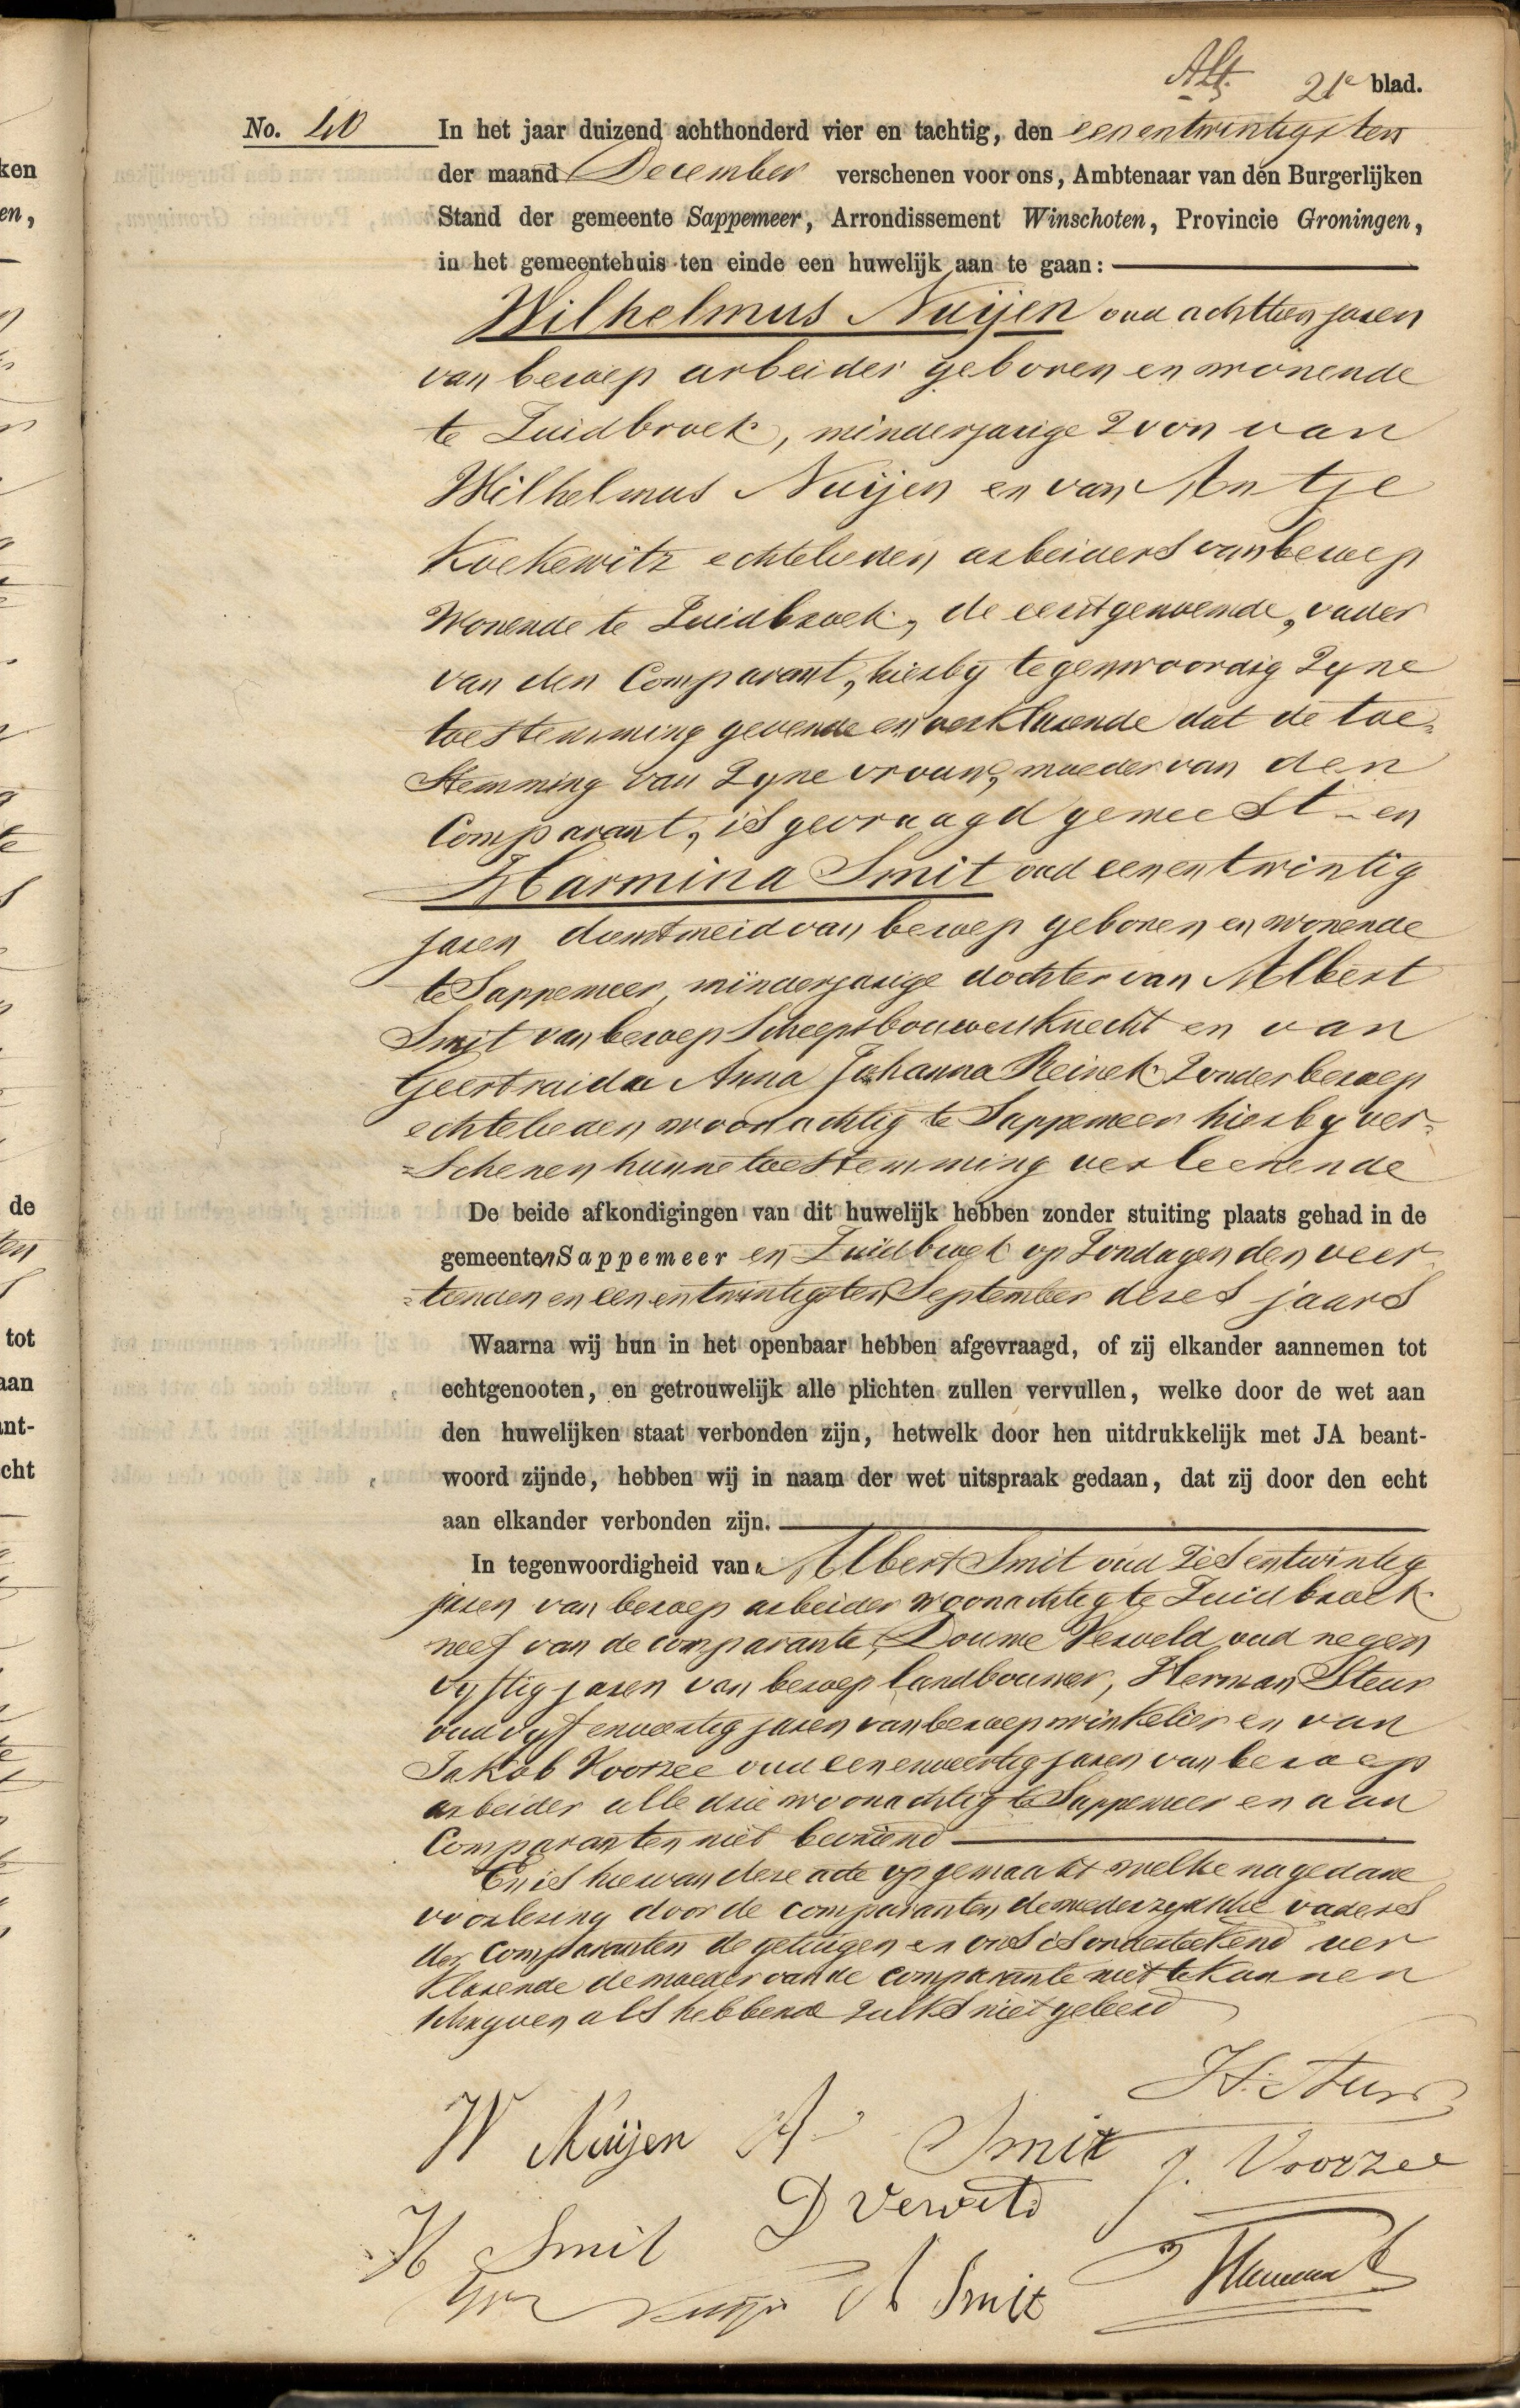 21e blad.
No. 40 In het jaar duizend achthonderd vier en tachtig, den eenentwintigsten
der maand December verschenen voor ons, Ambtenaar van den Burgerlijken
Stand der gemeente Sappemeer, Arrondissement Winschoten, Provincie Groningen,
in het gemeentehuis ten einde een huwelijk aan te gaan:
Wilhelmus Nuijen oud achttien jaren
van beroep arbeider geboren en wonende
te Zuidbroek, minderjarige Zoon van
Wilhelmus Nuijen en van Antje
Koekewitz echtelieden arbeiders van beroep
Wonende te Zuidbroek, de eerstgenoemde, vader
van den Comparant, hierby tegenwoordig Zyne
toestemming gevende en verklarende dat de toe=
Stemming van Zyne vrouw, moeder van den
Comparant, is gevraagd geweest - en
Harmina Smit oud eenentwintig
jaren dienstmeid van beroep geboren en wonende
te Sappemeer, minderjarige dochter van Albert
Smit van beroep Scheepsbouwersknecht en van
Geertruida Anna Johanna Reinek Zonder beroep
echtelieden woonachtig te Sappemeer hierby ver=
=Schenen hunne toestemming verleenende
De beide afkondigingen van dit huwelijk hebben zonder stuiting plaats gehad in de
gemeenten Sappemeer en Zuidbroek op Zondagen den veer
=tienden en eenentwintigsten September dezes jaars
Waarna wij hun in het openbaar hebben afgevraagd, of zij elkander aannemen tot
echtgenooten, en getrouwelijk alle plichten zullen vervullen, welke door de wet aan
den huwelijken staat verbonden zijn, hetwelk door hen uitdrukkelijk met JA beant-
woord zijnde, hebben wij in naam der wet uitspraak gedaan, dat zij door den echt
aan elkander verbonden zijn.
In tegenwoordigheid van Albert Smit oud Zes entwintig
jaren van beroep arbeider woonachtig te Zuidbroek
neef van de comparante, Douwe Verveld, oud negen
vyftig jaren van beroep landbouwer, Herman Steur
oud vyf enveertig jaren van beroep winkelier en van
Jakob Voorzee oud eenenveertig jaren van beroep
arbeider alle drie woonachtig te Sappemeer en aan
Comparanten niet bevriend
En is hiervan deze acte opgemaakt welke na gedane
voorlezing door de comparanten de wederzydsche vaders
der Comparanten de getuigen en ons is onderteekend ver
klarende de moeder van de comparante niet te kunnen
schryven als hebbende zulks niet geleerd
H. Steur
W Nuijen A Smit J. Voorzee
D Verveld
H Smit
A Smit